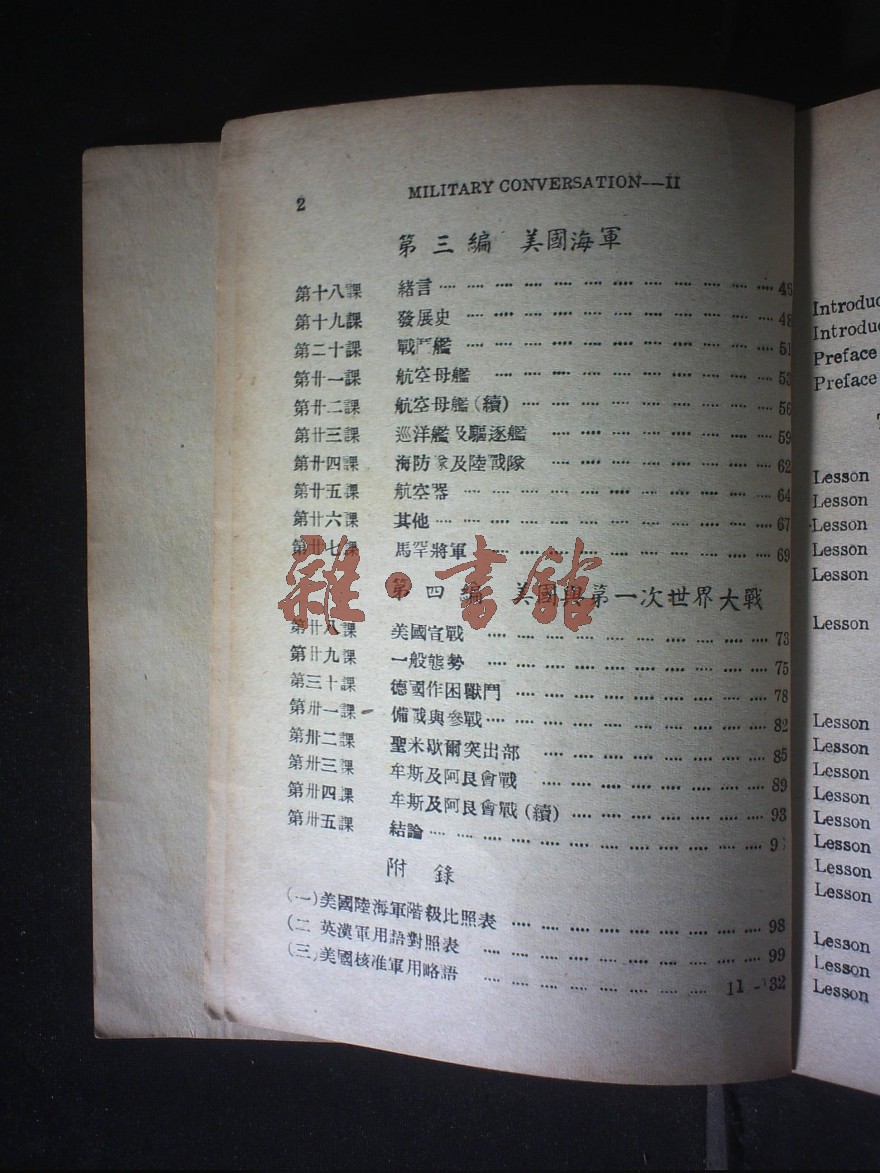 2 MILITARY CONVERSATION—II
第三編 美國海軍
第十八課 緒言 .... .... .... .... 46
第十九課 發展史 .... .... .... .... 48
第二十課 戰鬥艦 .... .... .... .... 51
第廿一課 航空母艦 .... .... .... .... 53
第廿二課 航空母艦(續) .... .... .... .... 56
第廿三課 巡洋艦及驅逐艦 .... .... .... .... 59
第廿四課 海防隊及陸戰隊 .... .... .... .... 62
第廿五課 航空器 .... .... .... .... 64
第廿六課 其他 .... .... .... .... 67
第廿七課 馬罕將軍 .... .... .... .... 69
雜·書館
第四編 美國與第一次世界大戰
第廿八課 美國宣戰 .... .... .... .... 73
第廿九課 一般態勢 .... .... .... .... 75
第三十課 德國作困獸鬥 .... .... .... .... 78
第卅一課 備戰與參戰 .... .... .... .... 82
第卅二課 聖米歇爾突出部 .... .... .... .... 85
第卅三課 牟斯及阿艮會戰 .... .... .... .... 89
第卅四課 牟斯及阿艮會戰(續) .... .... .... .... 93
第卅五課 結論 .... .... .... ....
附錄
(一)美國陸海軍階級比照表 .... .... .... .... 98
(二 英漢軍用語對照表 .... .... .... .... 99
(三)美國核准軍用略語 .... .... .... ....
Preface
Preface
Lesson
Lesson
Lesson
Lesson
Lesson
Lesson
Lesson
Lesson
Lesson
Lesson
Lesson
Lesson
Lesson
Lesson
Lesson
Lesson
Lesson